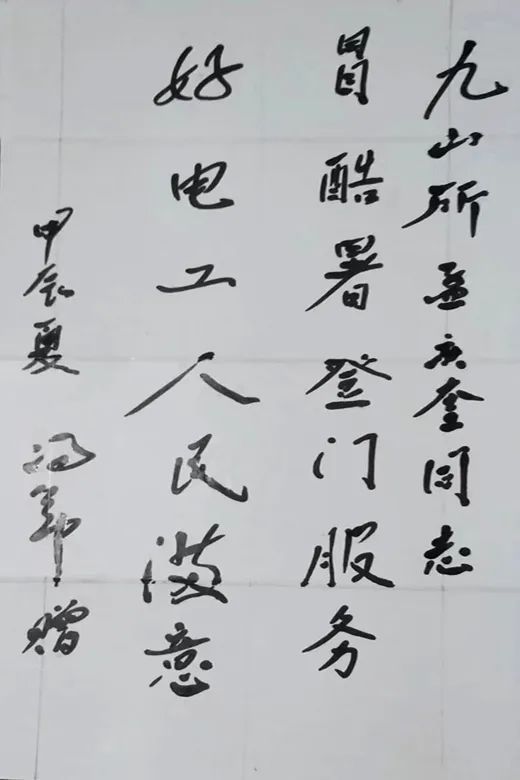 九山所孟庆奎同志
冒酷署登门服务
好电工人民满意
甲辰夏 冯军赠